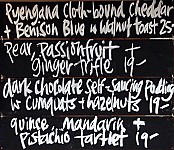 pyengana Cloth-bound cheddar
+ Benison Blue w walnut toast 25-
pear, Passionfruit +
ginger Trifle 19-
dark chocolate Self-saucing Pudding
w Cumquats + hazelnuts 19-
quince, mandarin +
Pistachio tartlet 19-